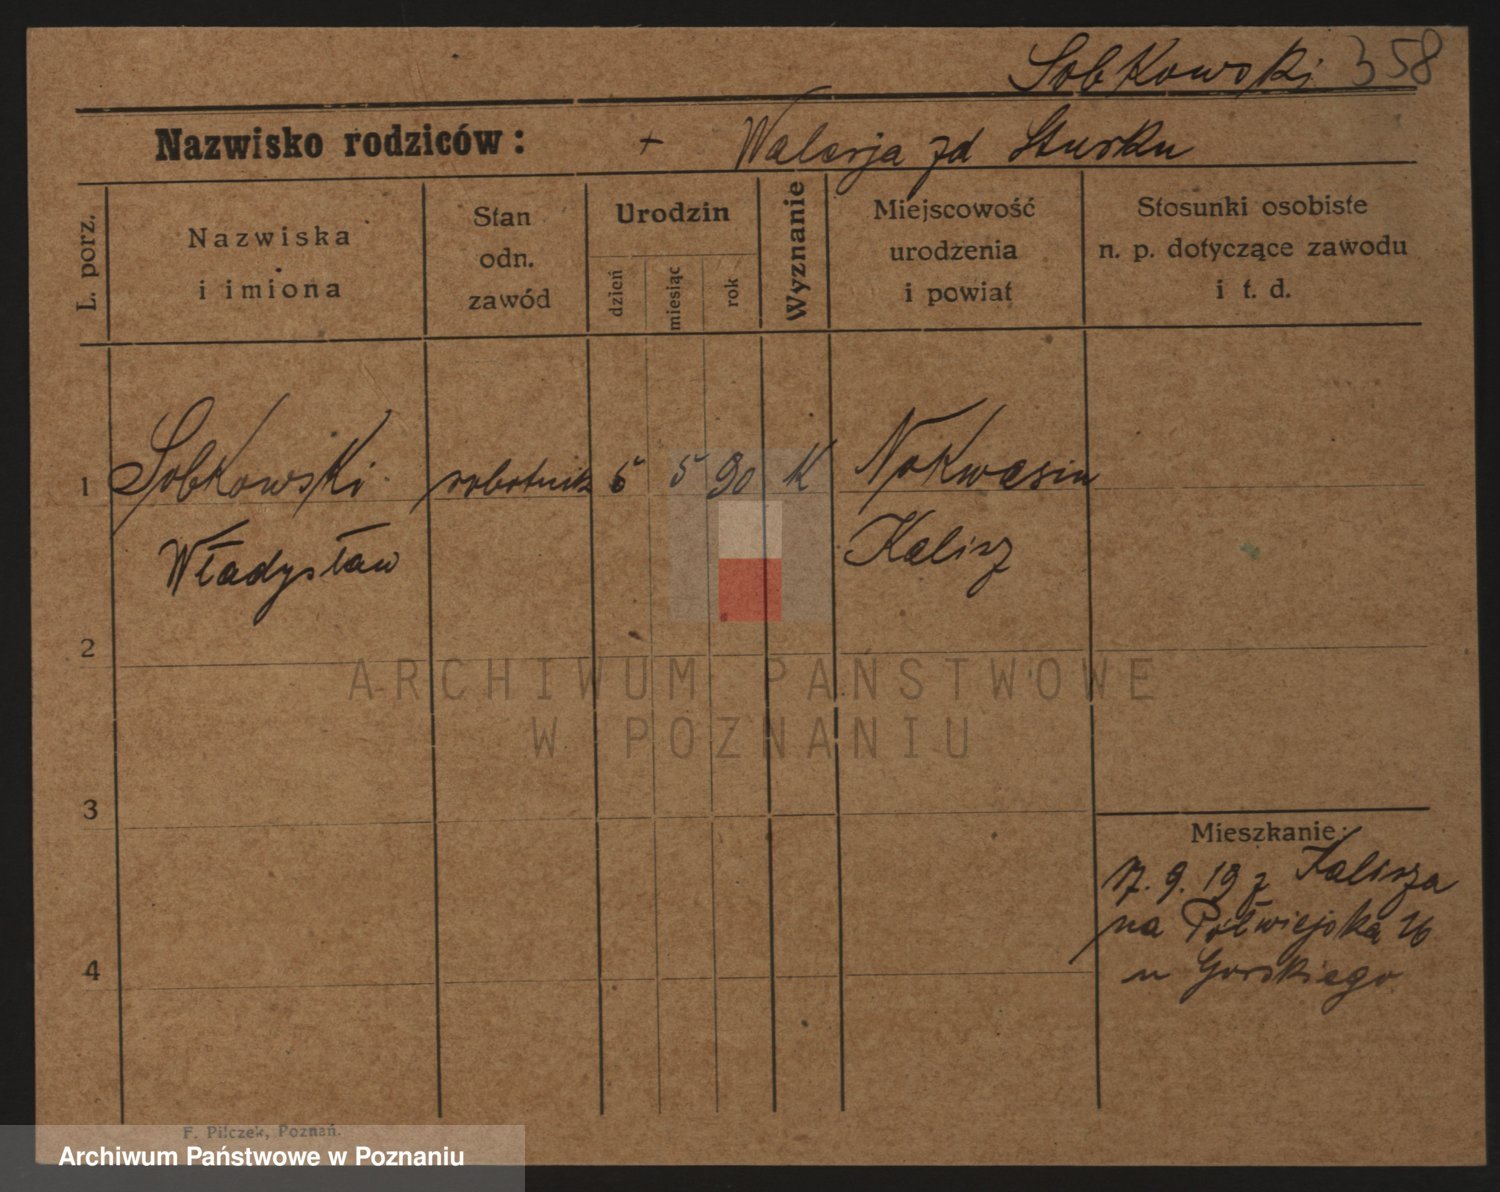 Sobkowski 358
Nazwisko rodziców: + Walerja zd
L. porz.
Nazwiska
i imiona
Stan
odn.
zawód
Urodzin
dzień
miesiąc
rok
Wyznanie
Miejscowość
urodzenia
i powiat
Stosunki osobiste
n. p. dotyczące zawodu
i t. d.
1 Sobkowski robotnik 5 5 90 K Nokwasin
Władysław Kalisz
2
3
4
Mieszkanie:
17. 9. 19 z Kalisza
na Półwiejską 26
u Gorskiego
ARCHIWUM PAŃSTWOWE
W POZNANIU
F. Pilczek, Poznań.
Archiwum Państwowe w Poznaniu